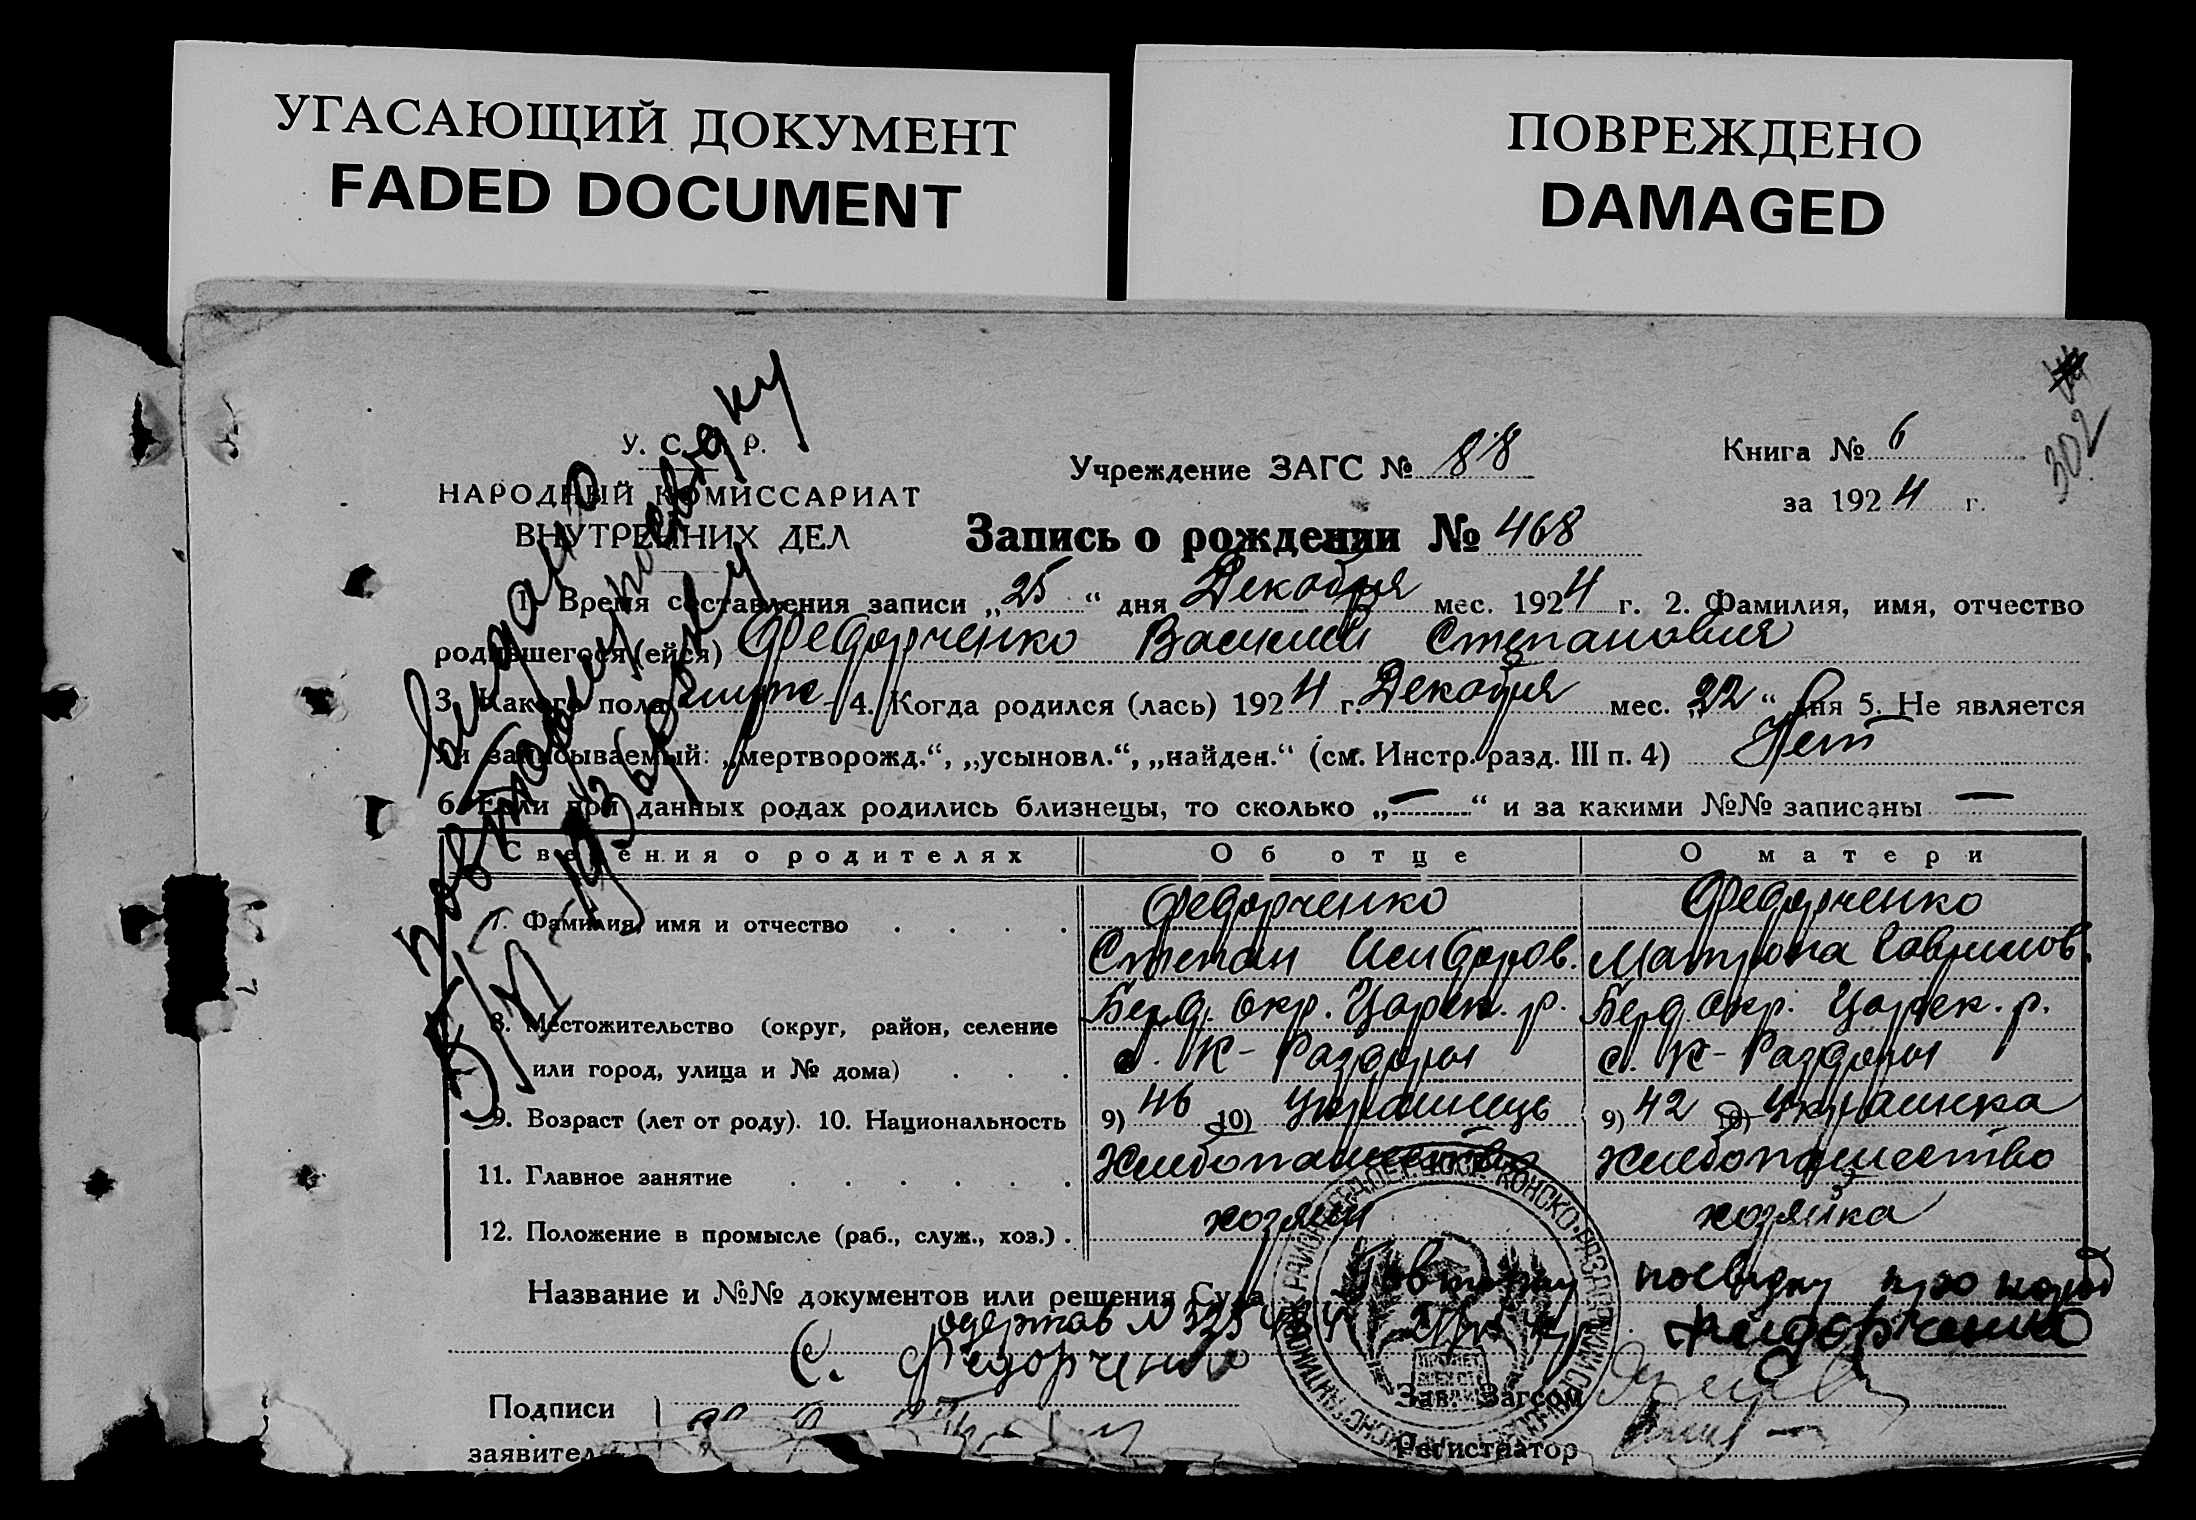 УГАСАЮЩИЙ ДОКУМЕНТ
FADED DOCUMENT
ПОВРЕЖДЕНО
DAMAGED
302
У. С. Р.
НАРОДНЫЙ КОМИССАРИАТ
ВНУТРЕННИХ ДЕЛ
Учреждение ЗАГС № 88
Книга № 6
за 1924 г.
Запись о рождении № 468
1. Время составления записи „25“ дня Декабря мес. 1924 г. 2. Фамилия, имя, отчество
родившегося (ейся) Федорченко Василий Степанович
3. Какого пола муж 4. Когда родился (лась) 1924 г. Декабря мес. „22“ дня 5. Не является
ли записываемый: „мертворожд.“, „усыновл.“, „найден.“ (см. Инстр. разд. III п. 4) Нет
6. Если при данных родах родились близнецы, то сколько „—“ и за какими №№ записаны —
Сведения о родителях Об отце О матери
7. Фамилия, имя и отчество . . . . Федорченко Федорченко
Степан Исидоров. Матрона Гаврилов.
8. Местожительство (округ, район, селение Берд. окр. Царек. р. Берд. окр. Царек. р.
или город, улица и № дома) . . . с. К-Раздоры с. К-Раздоры
9. Возраст (лет от роду). 10. Национальность 9) 46 10) Украинець 9) 42 10) Украинка
11. Главное занятие . . . . . . Хлебопашество Хлебопашество
12. Положение в промысле (раб., служ., хоз.) . хозяин хозяйка
Название и №№ документов или решения Суда Повторну посвідку про народ
одержав № Федорченко
С. Федорченко
Подписи
заявител
Зав. Загсом
Регистратор
видано
повторну
посвідку